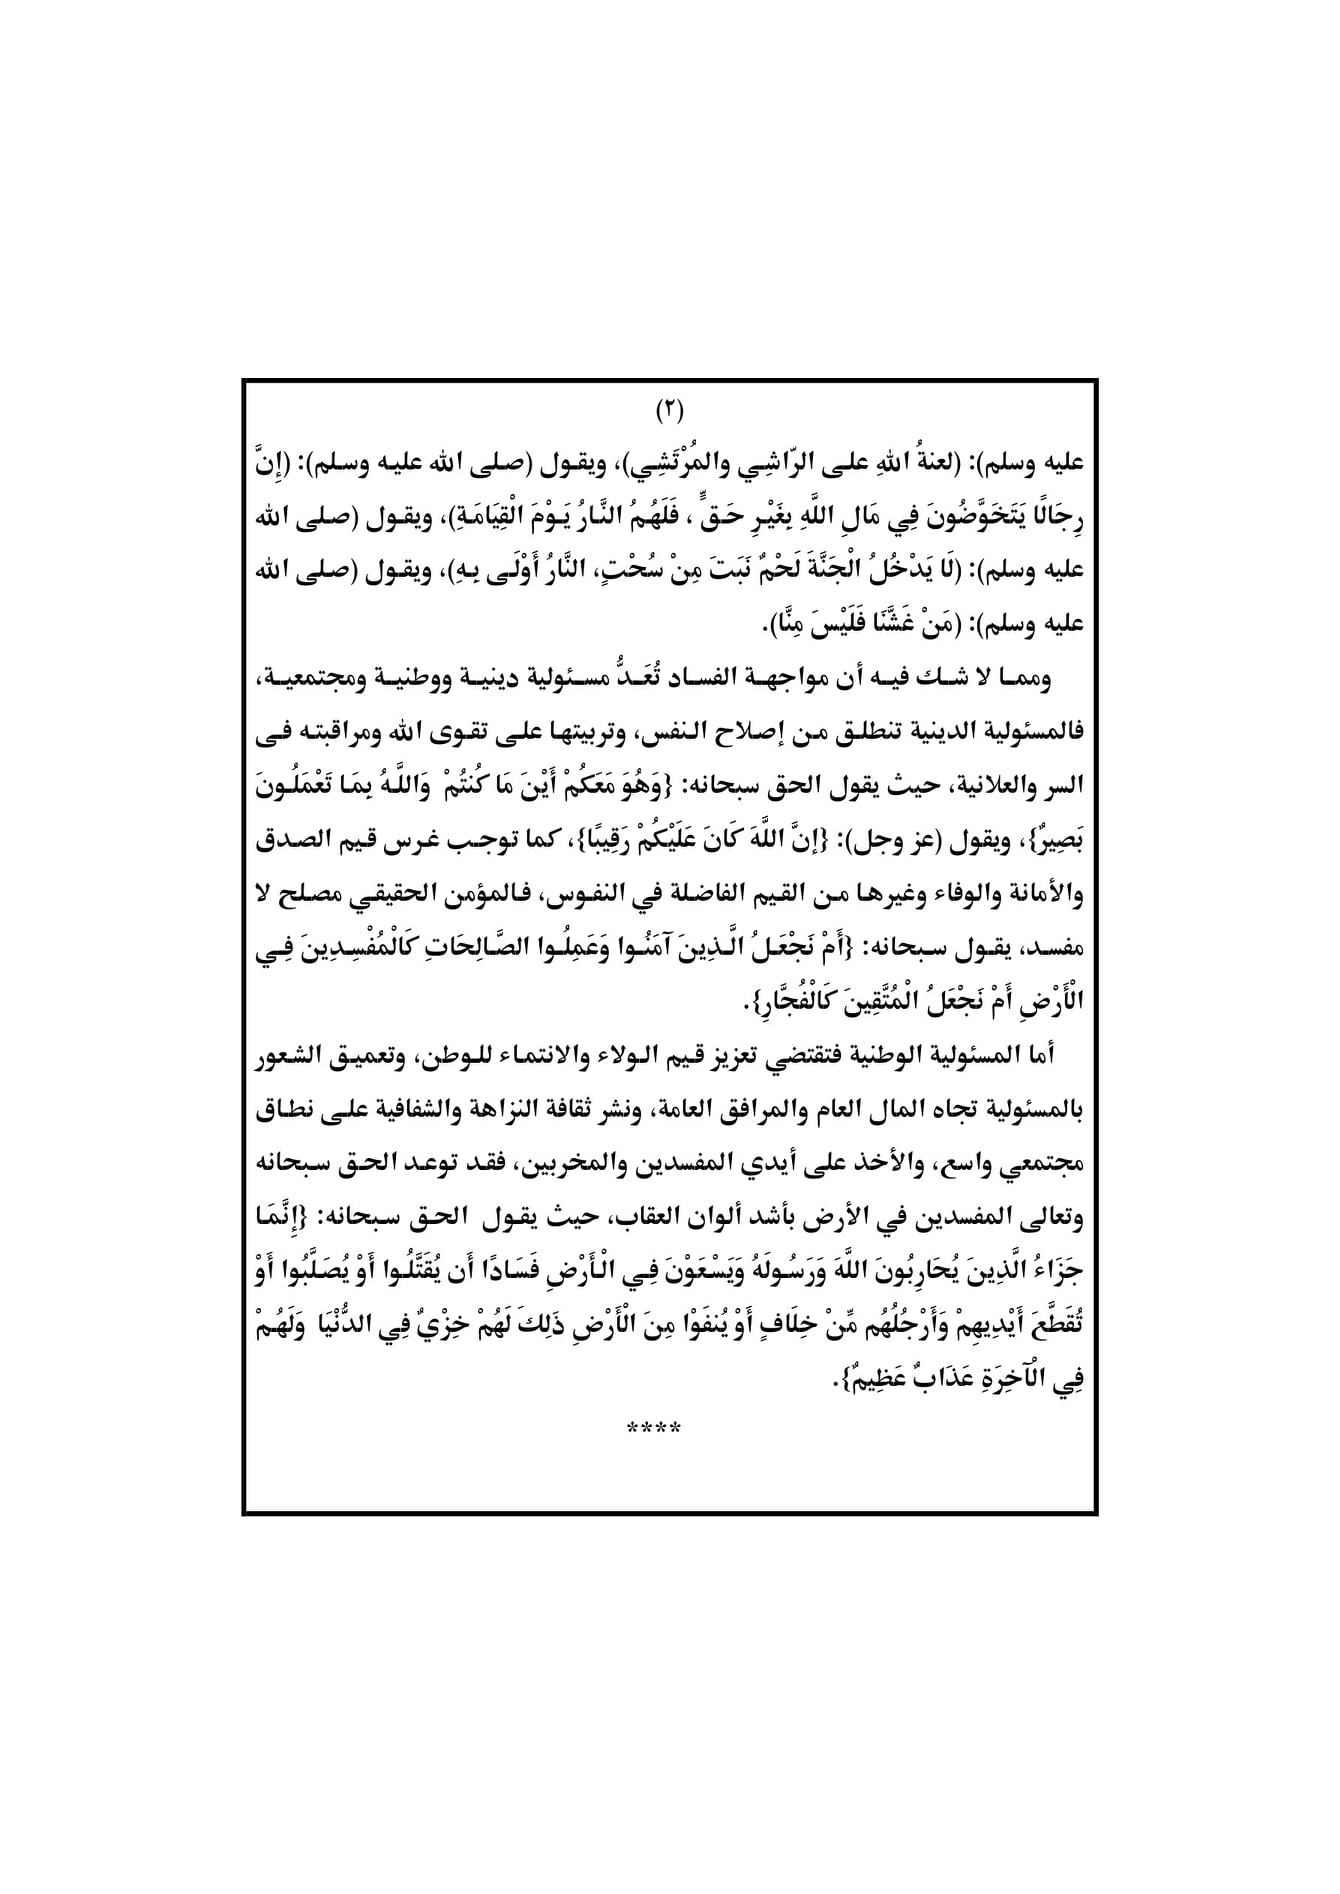 (٢)
عليه وسلم): (لعنةُ اللهِ على الرّاشِي والمُرْتَشِي)، ويقول (صلى الله عليه وسلم): (إِنَّ
رِجَالًا يَتَخَوَّضُونَ فِي مَالِ اللَّهِ بِغَيْرِ حَقٍّ ، فَلَهُمُ النَّارُ يَوْمَ الْقِيَامَةِ)، ويقول (صلى الله
عليه وسلم): (لَا يَدْخُلُ الْجَنَّةَ لَحْمٌ نَبَتَ مِنْ سُحْتٍ، النَّارُ أَوْلَى بِهِ)، ويقول (صلى الله
عليه وسلم): (مَنْ غَشَّنَا فَلَيْسَ مِنَّا).
ومما لا شك فيه أن مواجهة الفساد تُعَدُّ مسئولية دينية ووطنية ومجتمعية،
فالمسئولية الدينية تنطلق من إصلاح النفس، وتربيتها على تقوى الله ومراقبته فى
السر والعلانية، حيث يقول الحق سبحانه: {وَهُوَ مَعَكُمْ أَيْنَ مَا كُنتُمْ وَاللَّهُ بِمَا تَعْمَلُونَ
بَصِيرٌ}، ويقول (عز وجل): {إنَّ اللَّهَ كَانَ عَلَيْكُمْ رَقِيبًا}، كما توجب غرس قيم الصدق
والأمانة والوفاء وغيرها من القيم الفاضلة في النفوس، فالمؤمن الحقيقي مصلح لا
مفسد، يقول سبحانه: {أَمْ نَجْعَلُ الَّذِينَ آمَنُوا وَعَمِلُوا الصَّالِحَاتِ كَالْمُفْسِدِينَ فِي
الْأَرْضِ أَمْ نَجْعَلُ الْمُتَّقِينَ كَالْفُجَّارِ}.
أما المسئولية الوطنية فتقتضي تعزيز قيم الولاء والانتماء للوطن، وتعميق الشعور
بالمسئولية تجاه المال العام والمرافق العامة، ونشر ثقافة النزاهة والشفافية على نطاق
مجتمعي واسع، والأخذ على أيدي المفسدين والمخربين، فقد توعد الحق سبحانه
وتعالى المفسدين في الأرض بأشد ألوان العقاب، حيث يقول الحق سبحانه: {إِنَّمَا
جَزَاءُ الَّذِينَ يُحَارِبُونَ اللَّهَ وَرَسُولَهُ وَيَسْعَوْنَ فِي الْأَرْضِ فَسَادًا أَن يُقَتَّلُوا أَوْ يُصَلَّبُوا أَوْ
تُقَطَّعَ أَيْدِيهِمْ وَأَرْجُلُهُم مِّنْ خِلَافٍ أَوْ يُنفَوْا مِنَ الْأَرْضِ ذَلِكَ لَهُمْ خِزْيٌ فِي الدُّنْيَا وَلَهُمْ
فِي الْآخِرَةِ عَذَابٌ عَظِيمٌ}.
****